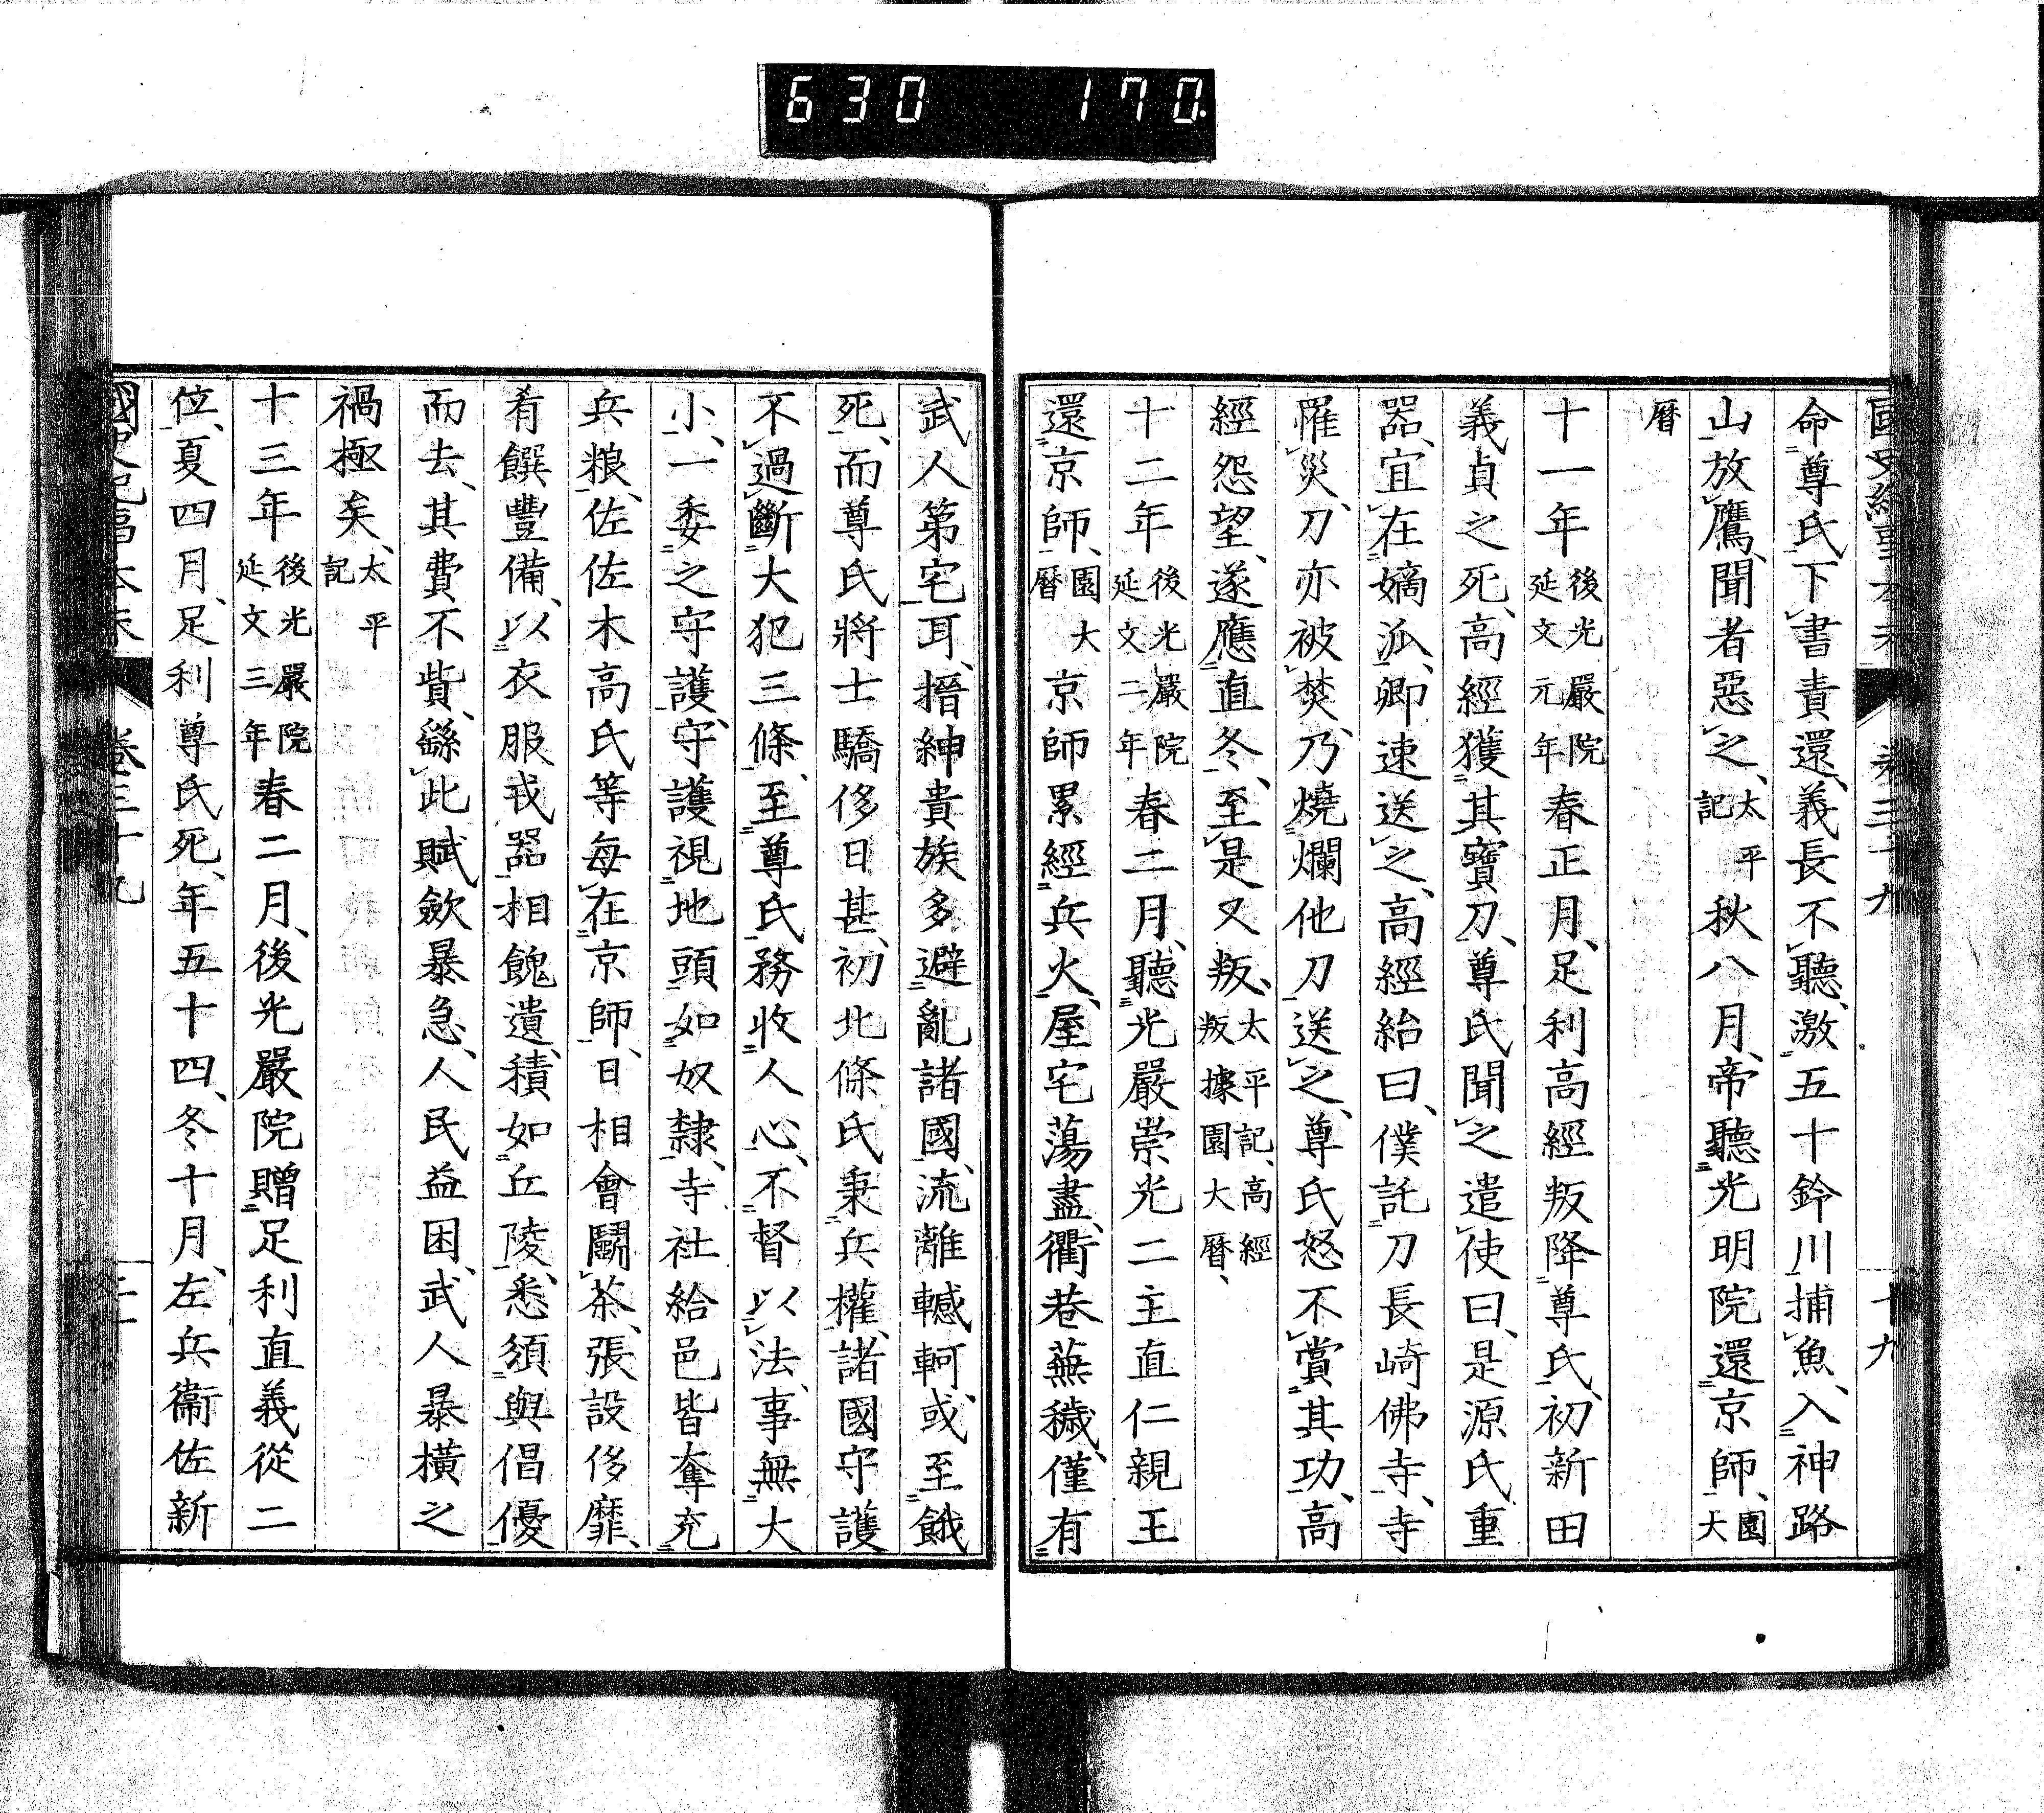 630 170
國史紀事本末 卷三十九 十九
命尊氏下書責還、義長不聽、激五十鈴川捕魚、入神路
山放鷹、聞者惡之、太平記 秋八月、帝聽光明院還京師、園大
曆
十一年後光嚴院延文元年春正月、足利高經叛降尊氏、初新田
義貞之死、高經獲其寶刀、尊氏聞之遣使曰、是源氏重
器、宜在嫡泒、卿速送之、高經紿曰、僕託刀長崎佛寺、寺
罹災、刀亦被焚、乃燒爛他刀送之、尊氏怒不賞其功、高
經怨望、遂應直冬、至是又叛、太平記、高經叛據園大曆、
十二年後光嚴院延文二年春二月、聽光嚴崇光二主直仁親王
還京師、園大曆 京師累經兵火、屋宅蕩盡、衢巷蕪穢、僅有
武人第宅耳、搢紳貴族多避亂諸國、流離轗軻、或至餓
死、而尊氏將士驕侈日甚、初北條氏秉兵權、諸國守護
不過斷大犯三條、至尊氏務收人心、不督以法、事無大
小、一委之守護、守護視地頭如奴隸、寺社給邑皆奪充
兵粮、佐佐木高氏等每在京師、日相會鬭茶、張設侈靡、
肴饌豐備、以衣服戎器相餽遺、積如丘陵、悉須與倡優
而去、其費不貲、繇此賦歛暴急、人民益困、武人暴橫之
禍極矣、太平記
十三年後光嚴院延文三年春二月、後光嚴院贈足利直義從二
位、夏四月、足利尊氏死、年五十四、冬十月、左兵衞佐新
國史紀事本末 卷三十九 二十